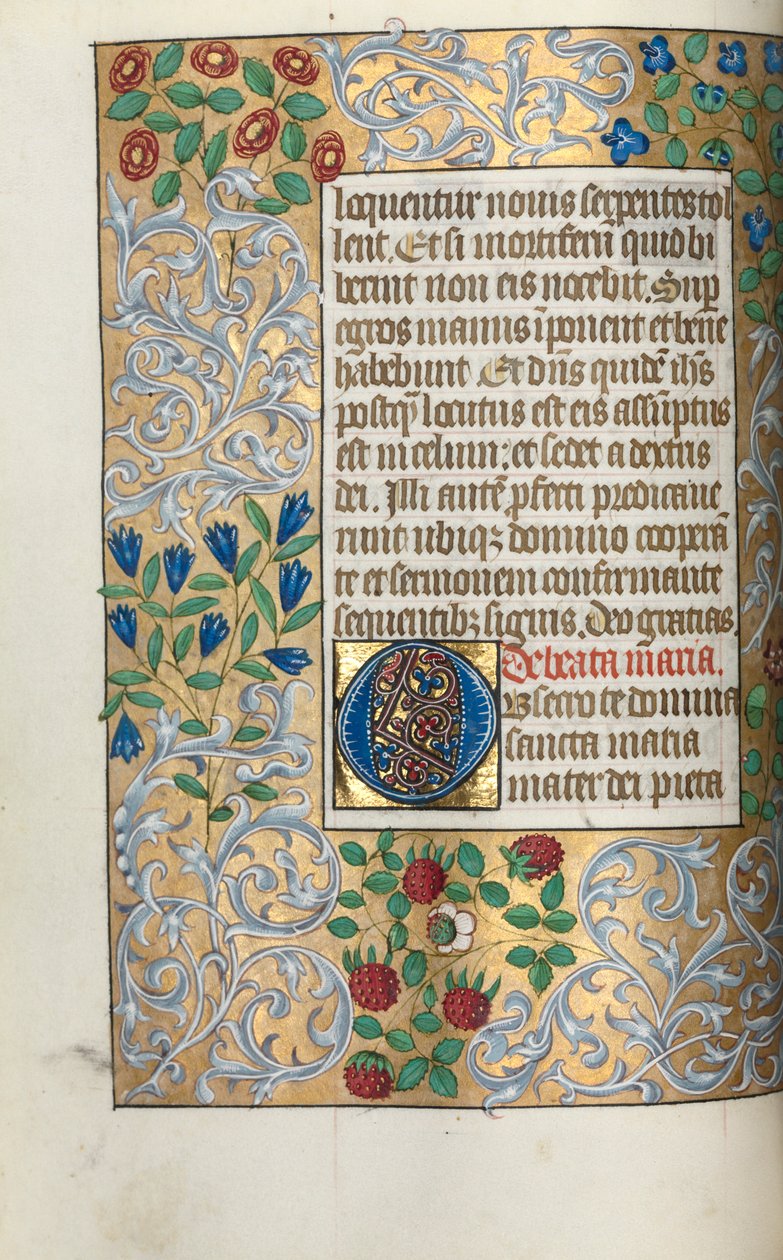 loquentur nouis serpentes tol
lent. Et si mortiferū quid bi
berint non eis nocebit. Sup
egros manus īponent et bene
habebunt. Et dn̄s quidē ihs̄
postq̄ locutus est eis assūptus
est in celum: et sedet a dextris
dei. Illi autē pfecti predicaue
runt ubiqꝫ domino cooperā
te et sermonem confirmante
sequentibꝫ signis. Deo gratias.
De beata maria.
Obsecro te domina
sancta maria
mater dei pieta